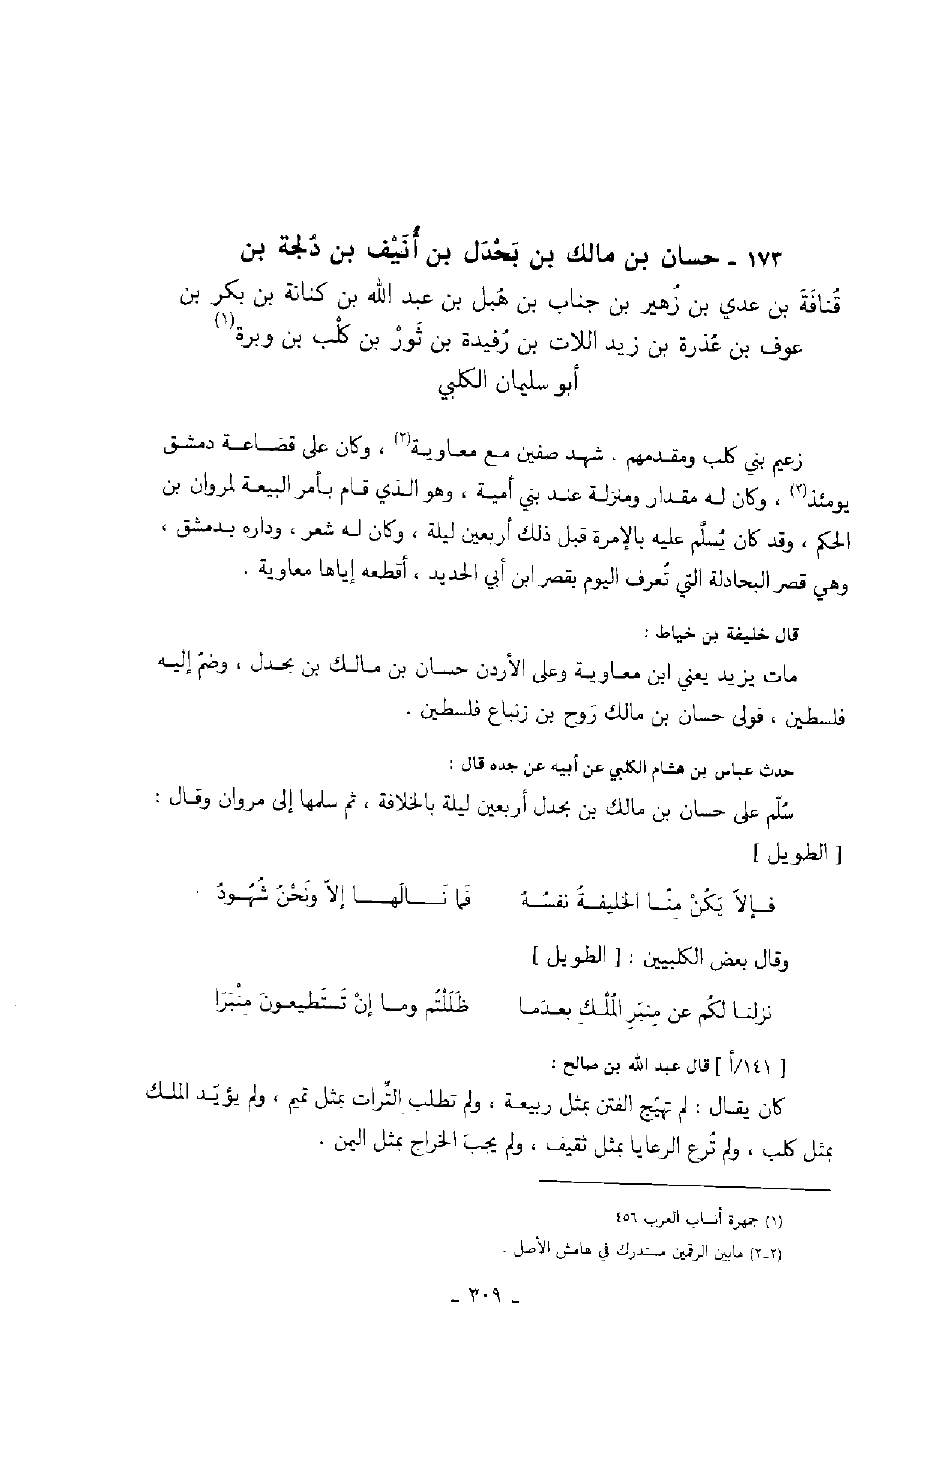 ١٧٣ ـ حسان بن مالك بن بَحْدَل بن أُنَيْف بن دُلجة بن
قُنافَة بن عدي بن زُهير بن جناب بن هُبل بن عبد الله بن كنانة بن بكر بن
عوف بن عُذرة بن زيد اللات بن رُفيدة بن ثَورْ بن كلْب بن وبرة(١)
أبو سليمان الكلبي
زعيم بني كلب ومقدمهم . شهد صفين مع معاوية(٢) ، وكان على قضاعة دمشق
يومئذ(٣) ، وكان له مقدار ومنزلة عند بني أمية ، وهو الذي قام بأمر البيعة لمروان بن
الحكم ، وقد كان يُسلَّم عليه بالإمرة قبل ذلك أربعين ليلة ، وكان له شعر ، وداره بدمشق ،
وهي قصر البحادلة التي تُعرف اليوم بقصر ابن أبي الحديد ، أقطعه إياها معاوية .
قال خليفة بن خياط :
مات يزيد يعني ابن معاوية وعلى الأردن حسان بن مالك بن بحدل ، وضمّ إليه
فلسطين ، فولى حسان بن مالك رَوح بن زنباع فلسطين .
حدث عباس بن هشام الكلبي عن أبيه عن جده قال :
سُلّم على حسان بن مالك بن بحدل أربعين ليلة بالخلافة ، ثم سلمها إلى مروان وقال :
[ الطويل ]
فإلاّ يَكُنْ مِنّا الخليفةُ نفسُهُ فما نَالَها إلاّ ونَحْنُ شُهُودُ .
وقال بعض الكلبيين : [ الطويل ]
نزلنا لكُم عن مِنبَرِ المُلْكِ بعدَما ظَلَلْتُم وما إنْ تَستَطيعونَ مِنْبَرَا
[ ١٤١/أ ] قال عبد الله بن صالح :
كان يقال : لم تهيّج الفتن بمثل ربيعة ، ولم تطلب التِّرات بمثل تميم ، ولم يؤيّد الملك
بمثل كلب ، ولم تُرع الرعايا بمثل ثقيف ، ولم يجبَ الخراج بمثل اليمن .
(١) جمهرة أنساب العرب ٤٥٦
(٢ـ٢) مابين الرقمين مستدرك في هامش الأصل .
ـ ٣٠٩ ـ